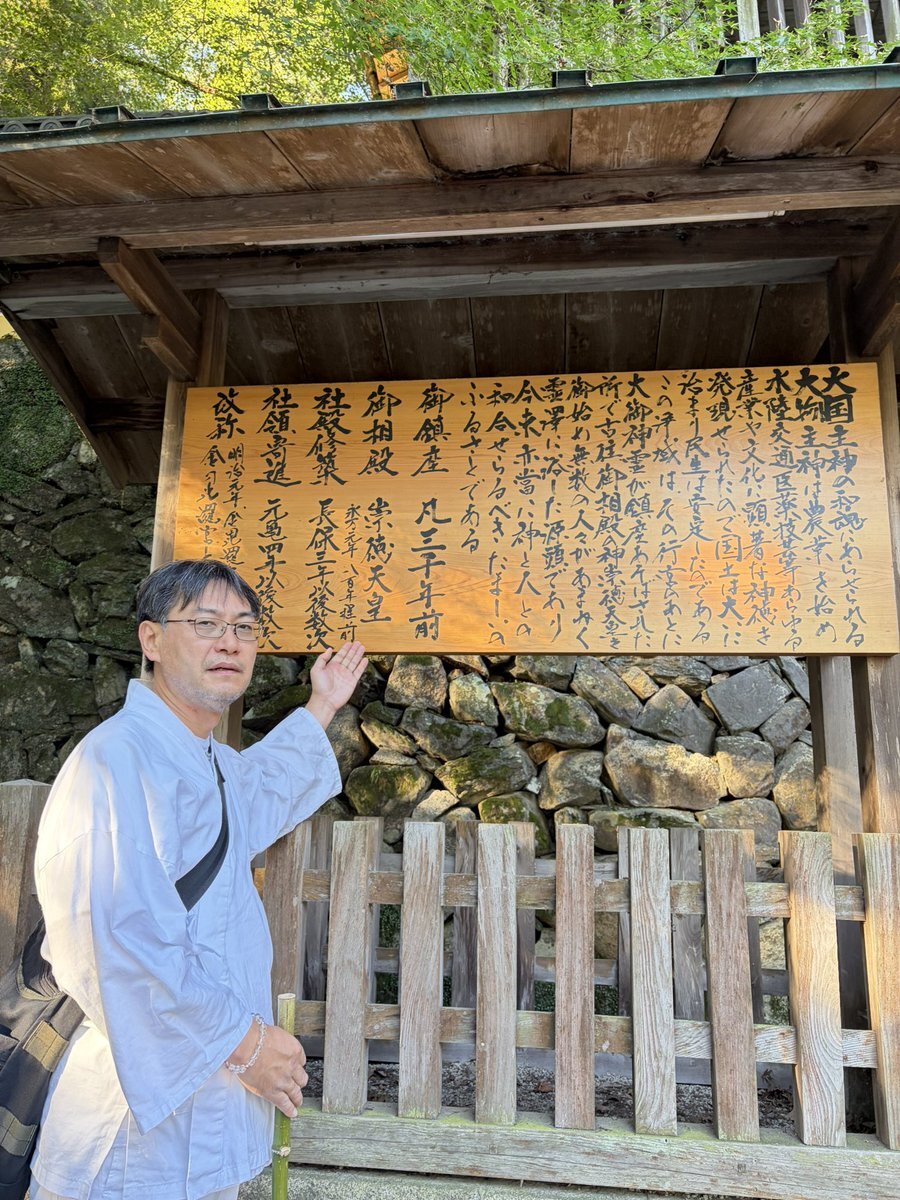 大国主神の和魂にあらせられる
大物主神は農業を始め
水陸交通医薬技藝あらゆる
産業や文化に顕著な神徳を
発現せられたので国土は大いに
治まり民生は安定したのである
この浄域は、その行宮あとに
大御神霊が鎮座あそばされた
所で古往御相殿の神崇徳天皇を
御始め無数の人々があまねく
霊澤に浴した源頭であり
今来亦當に神と人との
和合せらるべきたましいの
ふるさとである
御鎮座　凡三千年前
御相殿　崇徳天皇
永万元年　八百年程前
社殿修築　長保三年以後数次
社領寄進　元亀四年以後数次
改称　明治元年